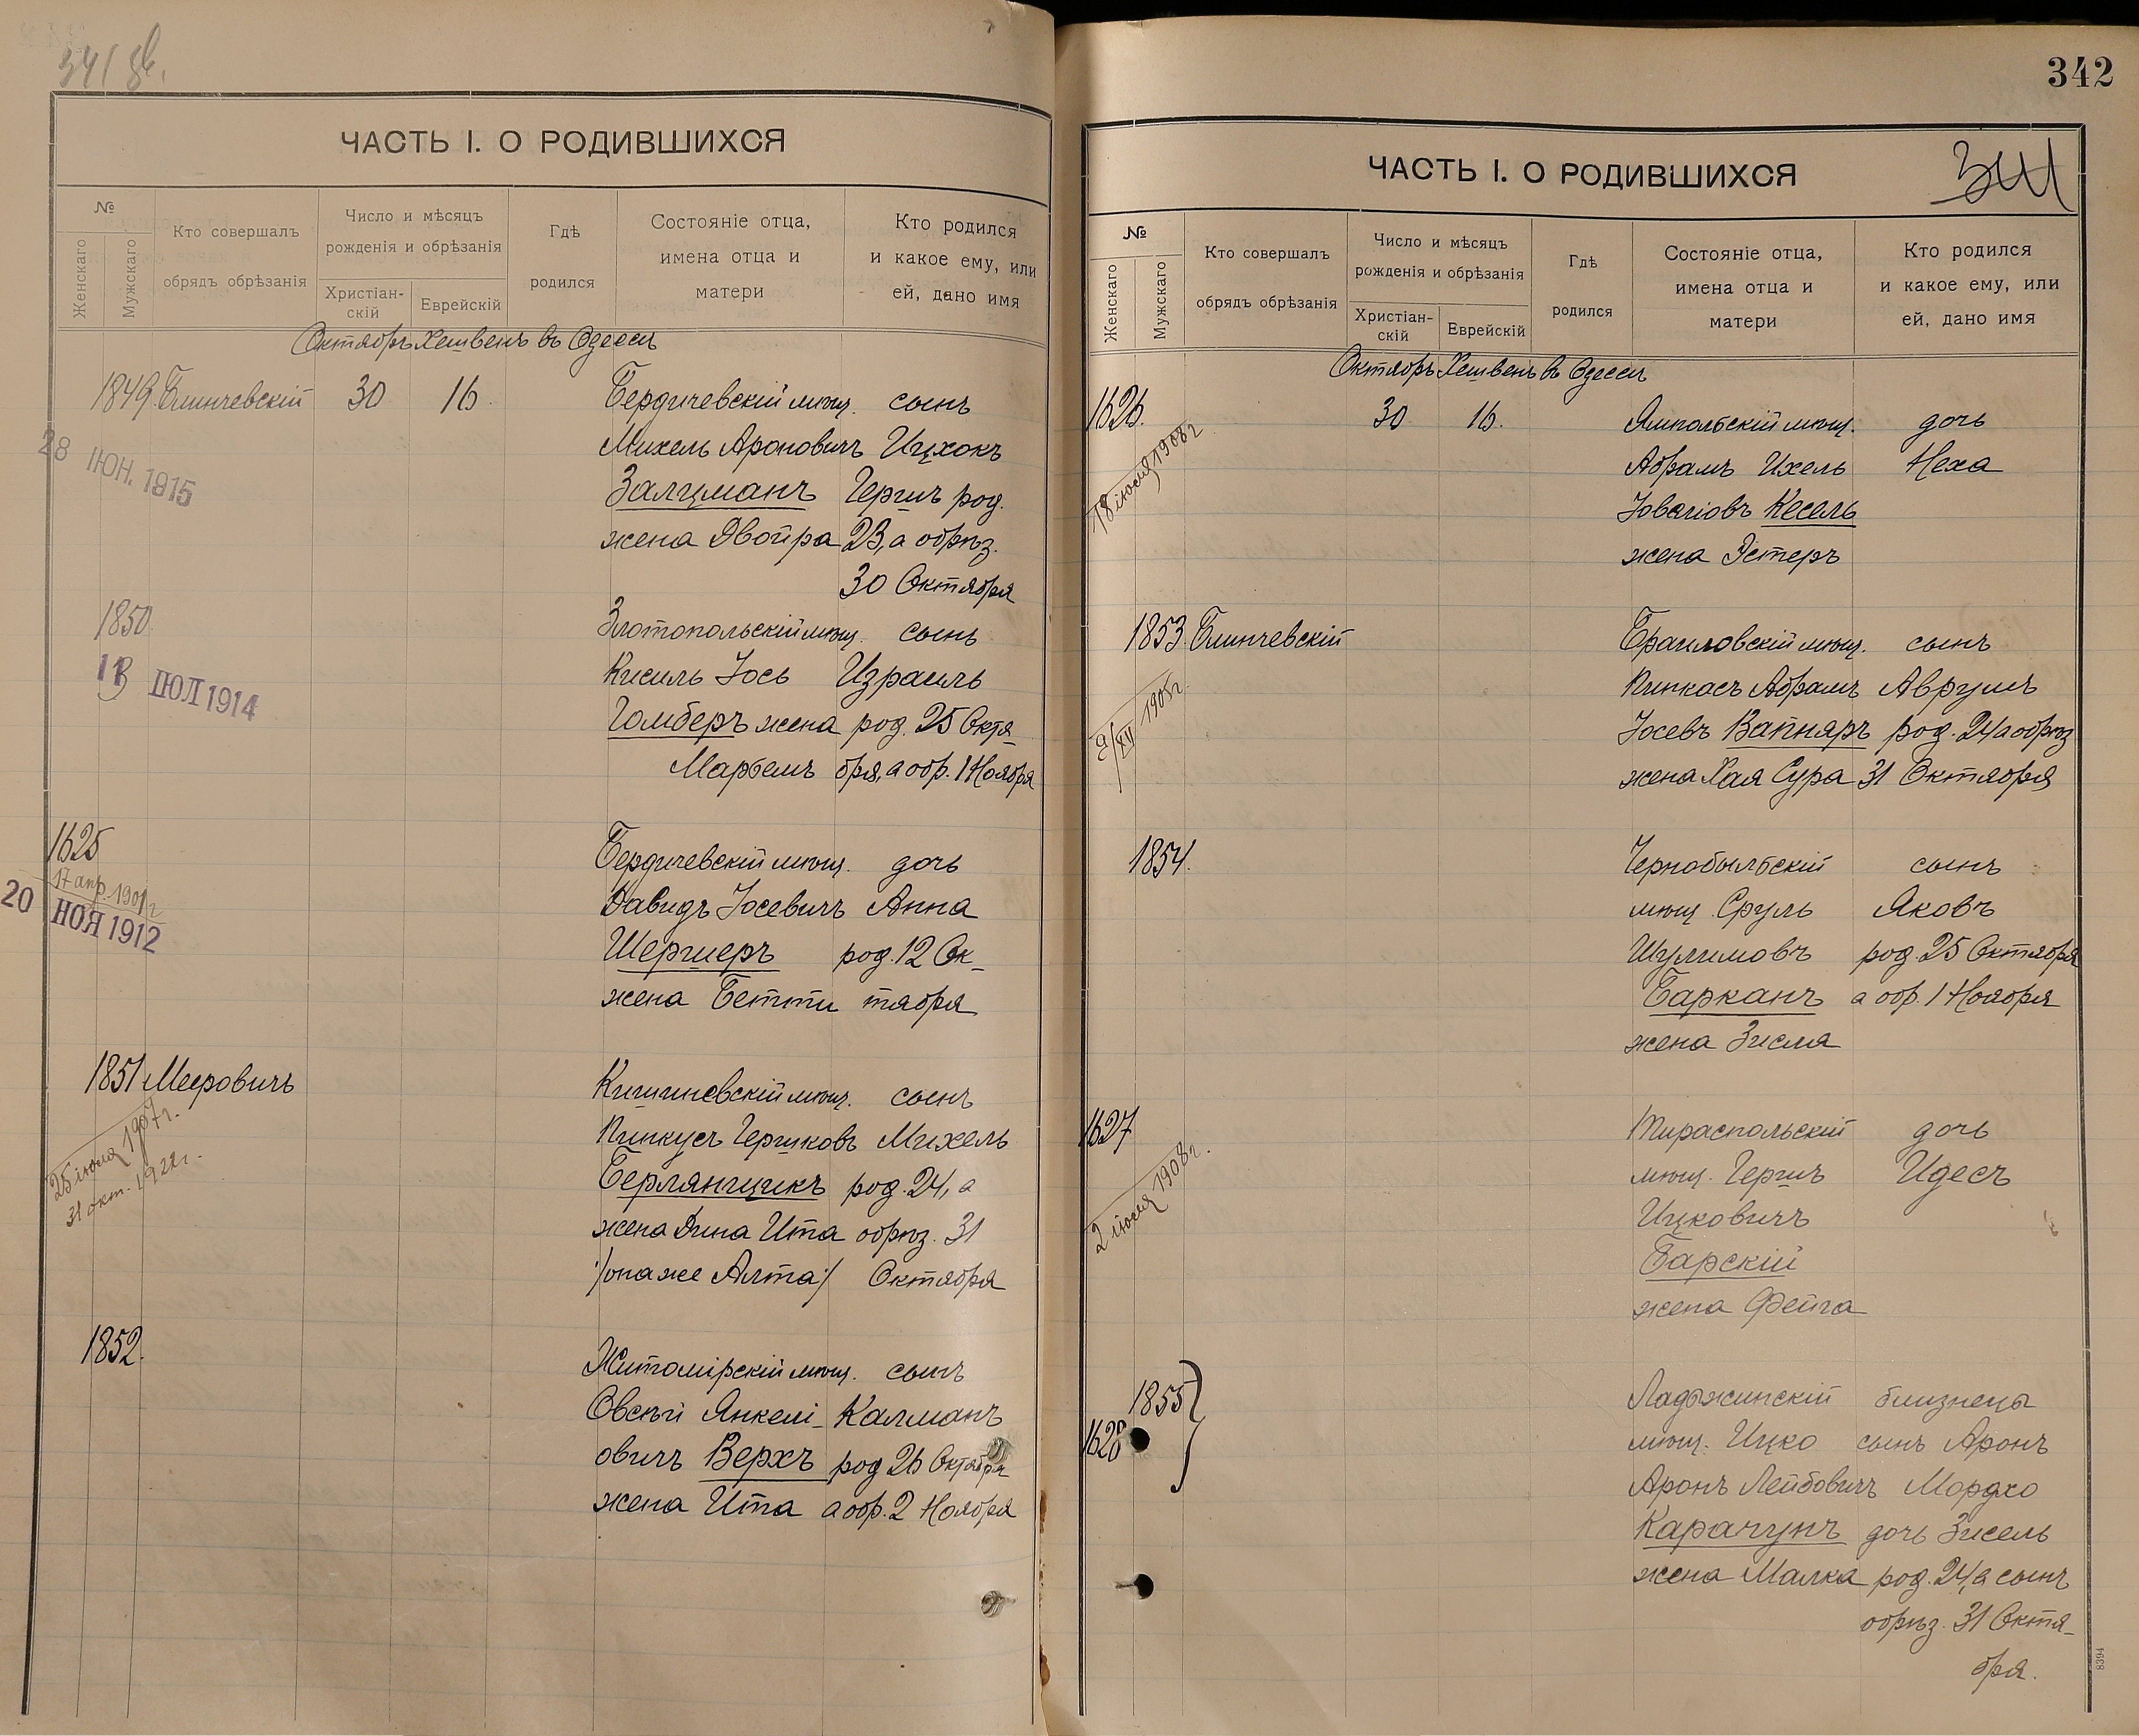 341 об.
ЧАСТЬ I. О РОДИВШИХСЯ
№
Женскаго
Мужскаго
Кто совершалъ
обрядъ обрѣзанія
Число и мѣсяцъ
рожденія и обрѣзанія
Христіан-
скій
Еврейскій
Гдѣ
родился
Состояніе отца,
имена отца и
матери
Кто родился
и какое ему, или
ей, дано имя
Октябрь Хешвенъ въ Одессѣ
1849. Блинчевскій 30 16. Бердичевскій мѣщ. сынъ
Михель Ароновичъ Ицхокъ
28 ІЮН. 1915
Залцманъ Гершъ род.
жена Двойра 23, а обрѣз.
30 Октября
1850. Златопольскій мѣщ. сынъ
13 ІЮЛ 1914
Кисиль Іось Израиль
Гомберъ жена род. 25 Октя-
Марьемъ бря, а обр. 1 Ноября
1625 Бердичевскій мѣщ. дочь
17 апр. 1901 г
20 НОЯ 1912
Давидъ Іосевичъ Анна
Шершеръ род. 12 Ок-
жена Бетти тября
1851 Мееровичъ Кишиневскій мѣщ. сынъ
25 іюля 1907 г.
31 окт. 1922 г.
Пинкусъ Гершковъ Михель
Берлянщикъ род. 24, а
жена Дина Ита обрѣз. 31
/она же Алта/ Октября
1852. Житомірскій мѣщ. сынъ
Овсѣй Янкелі- Калманъ
овичъ Верхъ род 26 Октября
жена Ита а обр. 2 Ноября
342
ЧАСТЬ I. О РОДИВШИХСЯ
341
№
Женскаго
Мужскаго
Кто совершалъ
обрядъ обрѣзанія
Число и мѣсяцъ
рожденія и обрѣзанія
Христіан-
скій
Еврейскій
Гдѣ
родился
Состояніе отца,
имена отца и
матери
Кто родился
и какое ему, или
ей, дано имя
Октябрь Хешвенъ въ Одессѣ
1626. 30 16. Ямпольскій мѣщ. дочь
18 іюля 1908 г
Абрамъ Ихель Неха
Іовелiовъ Кесель
жена Эстеръ
1853. Блинчевскій Браиловскій мѣщ. сынъ
2/XII 1905 г.
Пинкасъ Абрамъ Аврумъ
Іосевъ Вапняръ род. 24 а обрѣз
жена Хая Сура 31 Октября
1854. Чернобыльскій сынъ
мѣщ. Сруль Яковъ
Шулимовъ род. 25 Октября
Барканъ а обр. 1 Ноября
жена Зисля
1627 Тираспольскій дочь
2 іюля 1908 г.
мѣщ. Гершъ Идесъ
Ицковичъ
Барскій
жена Фейга
1855 Ладыжинскій близнецы
1628 мѣщ. Ицко сынъ Аронъ
Аронъ Лейбовичъ Мордхо
Карачунъ дочь Зисель
жена Малка род. 24, а сынъ
обрѣз. 31 Октя-
бря.
8394